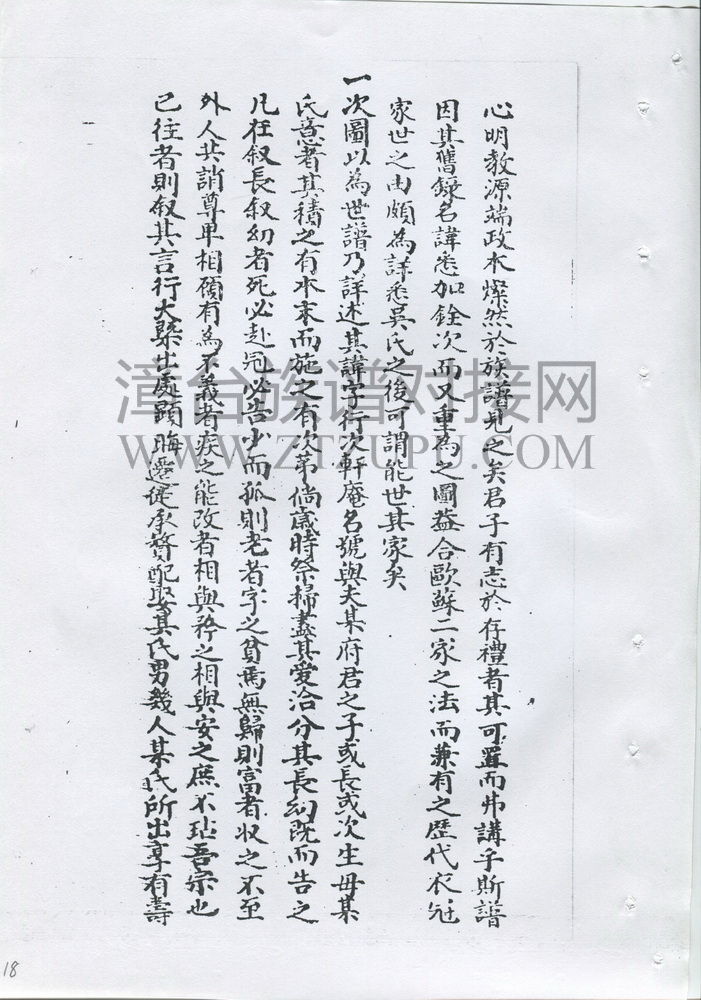 心明教源端政本燦然於族譜見之矣君子有志於存禮者其可置而弗講乎斯譜
因其舊錄名諱悉加銓次而又重為之圖益合歐蘇二家之法而兼有之歷代衣冠
家世之由頗為詳悉吳氏之後可謂能世其家矣
一次圖以為世譜乃詳述其諱字行次軒庵名號與夫某府君之子或長或次生母某
氏意者其積之有本末而施之有次第倘歲時祭掃盡其愛洽分其長幼既而告之
凡在叙長叙幼者死必赴冠必告少而孤則老者字之貧焉無歸則富者收之不至
外人共誚尊卑相頋有為不義者疾之能改者相與矜之相與安之庶不玷吾宗也
已往者則叙其言行大槩出處顯晦遷徙承贅配娶某氏男幾人某氏所出享有壽
漳台族谱对接网
WWW.ZTZUPU.COM
18